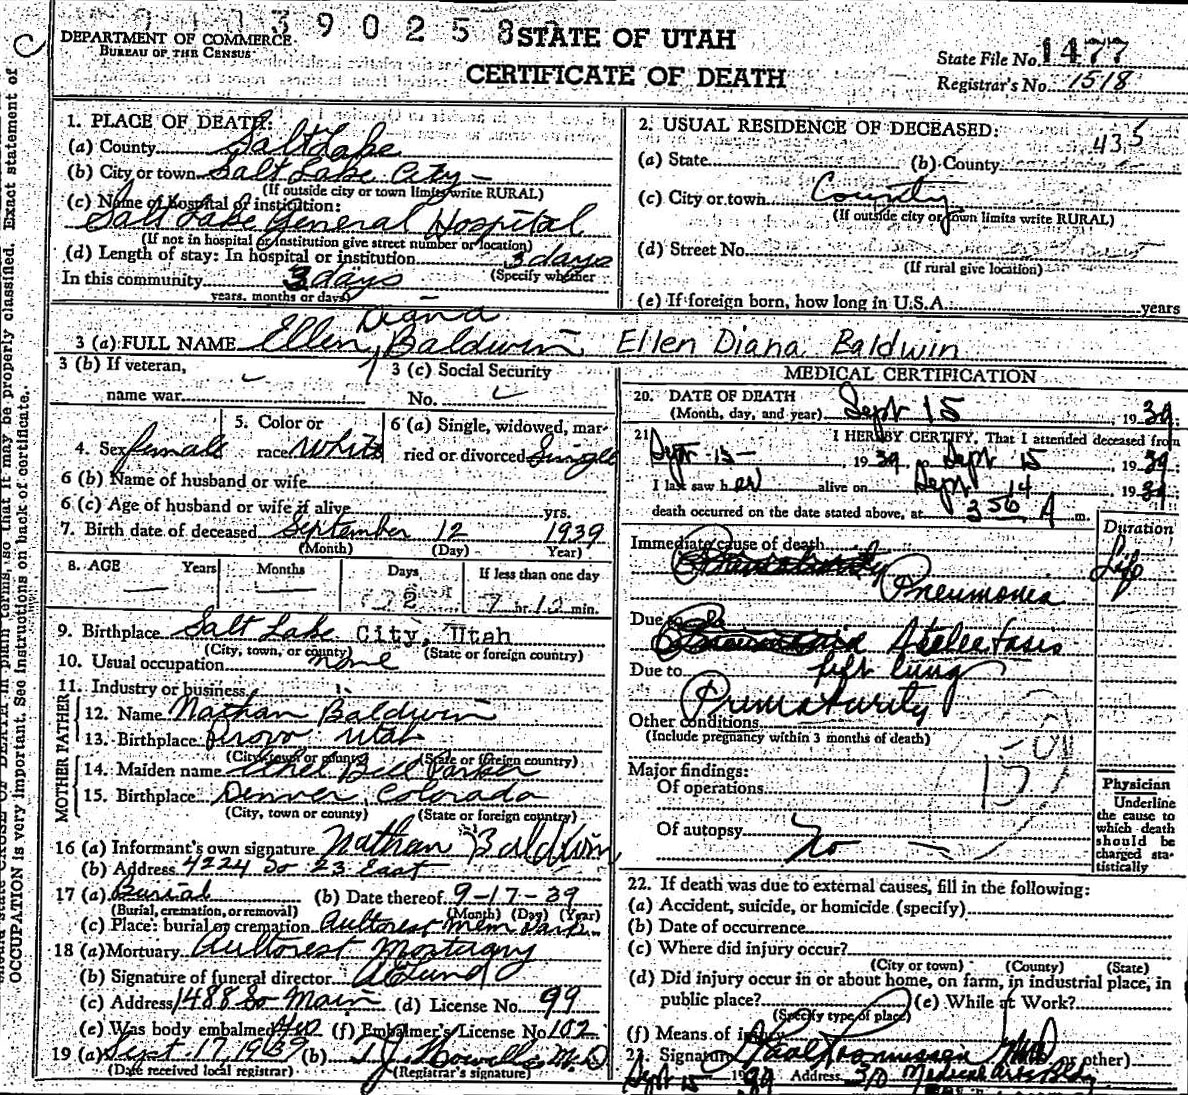 0 1 0 3 9 0 2 5 8
C
DEPARTMENT OF COMMERCE
BUREAU OF THE CENSUS
STATE OF UTAH
CERTIFICATE OF DEATH
State File No. 1477
Registrar's No. 1518
1. PLACE OF DEATH:
(a) County Salt Lake
(b) City or town Salt Lake City
(If outside city or town limits write RURAL)
(c) Name of hospital or institution:
Salt Lake General Hospital
(If not in hospital or institution give street number or location)
(d) Length of stay: In hospital or institution 3 days
(Specify whether
In this community 3 days
years, months or days)
2. USUAL RESIDENCE OF DECEASED:
435
(a) State (b) County
(c) City or town County
(If outside city or town limits write RURAL)
(d) Street No.
(If rural give location)
(e) If foreign born, how long in U.S.A. years
Diana
3 (a) FULL NAME Ellen Baldwin Ellen Diana Baldwin
3 (b) If veteran,
name war
3 (c) Social Security
No.
4. Sex female
5. Color or
race White
6 (a) Single, widowed, mar-
ried or divorced Single
6 (b) Name of husband or wife
6 (c) Age of husband or wife if alive yrs.
7. Birth date of deceased September 12 1939
(Month) (Day) Year)
8. AGE Years Months Days If less than one day
2 7 hr. 12 min.
9. Birthplace Salt Lake City, Utah
(City, town, or county) (State or foreign country)
10. Usual occupation none
11. Industry or business
FATHER
12. Name Nathan Baldwin
13. Birthplace Provo Utah
(City, town or county) (State or foreign country)
MOTHER
14. Maiden name Ethel Bell Parker
15. Birthplace Denver, Colorado
(City, town or county) (State or foreign country)
16 (a) Informant's own signature Nathan Baldwin
(b) Address 4224 So 23 East
17 (a) Burial (b) Date thereof 9-17-39
(Burial, cremation, or removal) (Month) (Day) (Year)
(c) Place: burial or cremation Aultorest Mem Park
18 (a) Mortuary Aultorest Mortuary
(b) Signature of funeral director
(c) Address 1488 So Main (d) License No. 99
(e) Was body embalmed (f) Embalmer's License No. 102
19 (a) Sept. 17, 1939 (b) T. J. Howells M.D
(Date received local registrar) (Registrar's signature)
MEDICAL CERTIFICATION
20. DATE OF DEATH
(Month, day, and year) Sept 15, 1939
21 I HEREBY CERTIFY, That I attended deceased from
Sept 15, 1939, Sept 15, 1939
I last saw her alive on Sept 14, 1939
death occurred on the date stated above, at 3 50 A m.
Duration
Immediate cause of death
Life
Pneumonia
Due to
Atelectasis
Due to left lung
Prematurity
Other conditions
(Include pregnancy within 3 months of death)
159
Major findings:
Of operations
Of autopsy No
Physician
Underline
the cause to
which death
should be
charged sta-
tistically
22. If death was due to external causes, fill in the following:
(a) Accident, suicide, or homicide (specify)
(b) Date of occurrence
(c) Where did injury occur?
(City or town) (County) (State)
(d) Did injury occur in or about home, on farm, in industrial place, in
public place? (e) While at Work?
(Specify type of place)
(f) Means of injury
23. Signature Paul Rasmussen or other)
Sept 15 1939 Address 310 Medical Arts Bldg
OCCUPATION is very important. See instructions on back of certificate.
in plain terms, so that it may be properly classified. Exact statement of